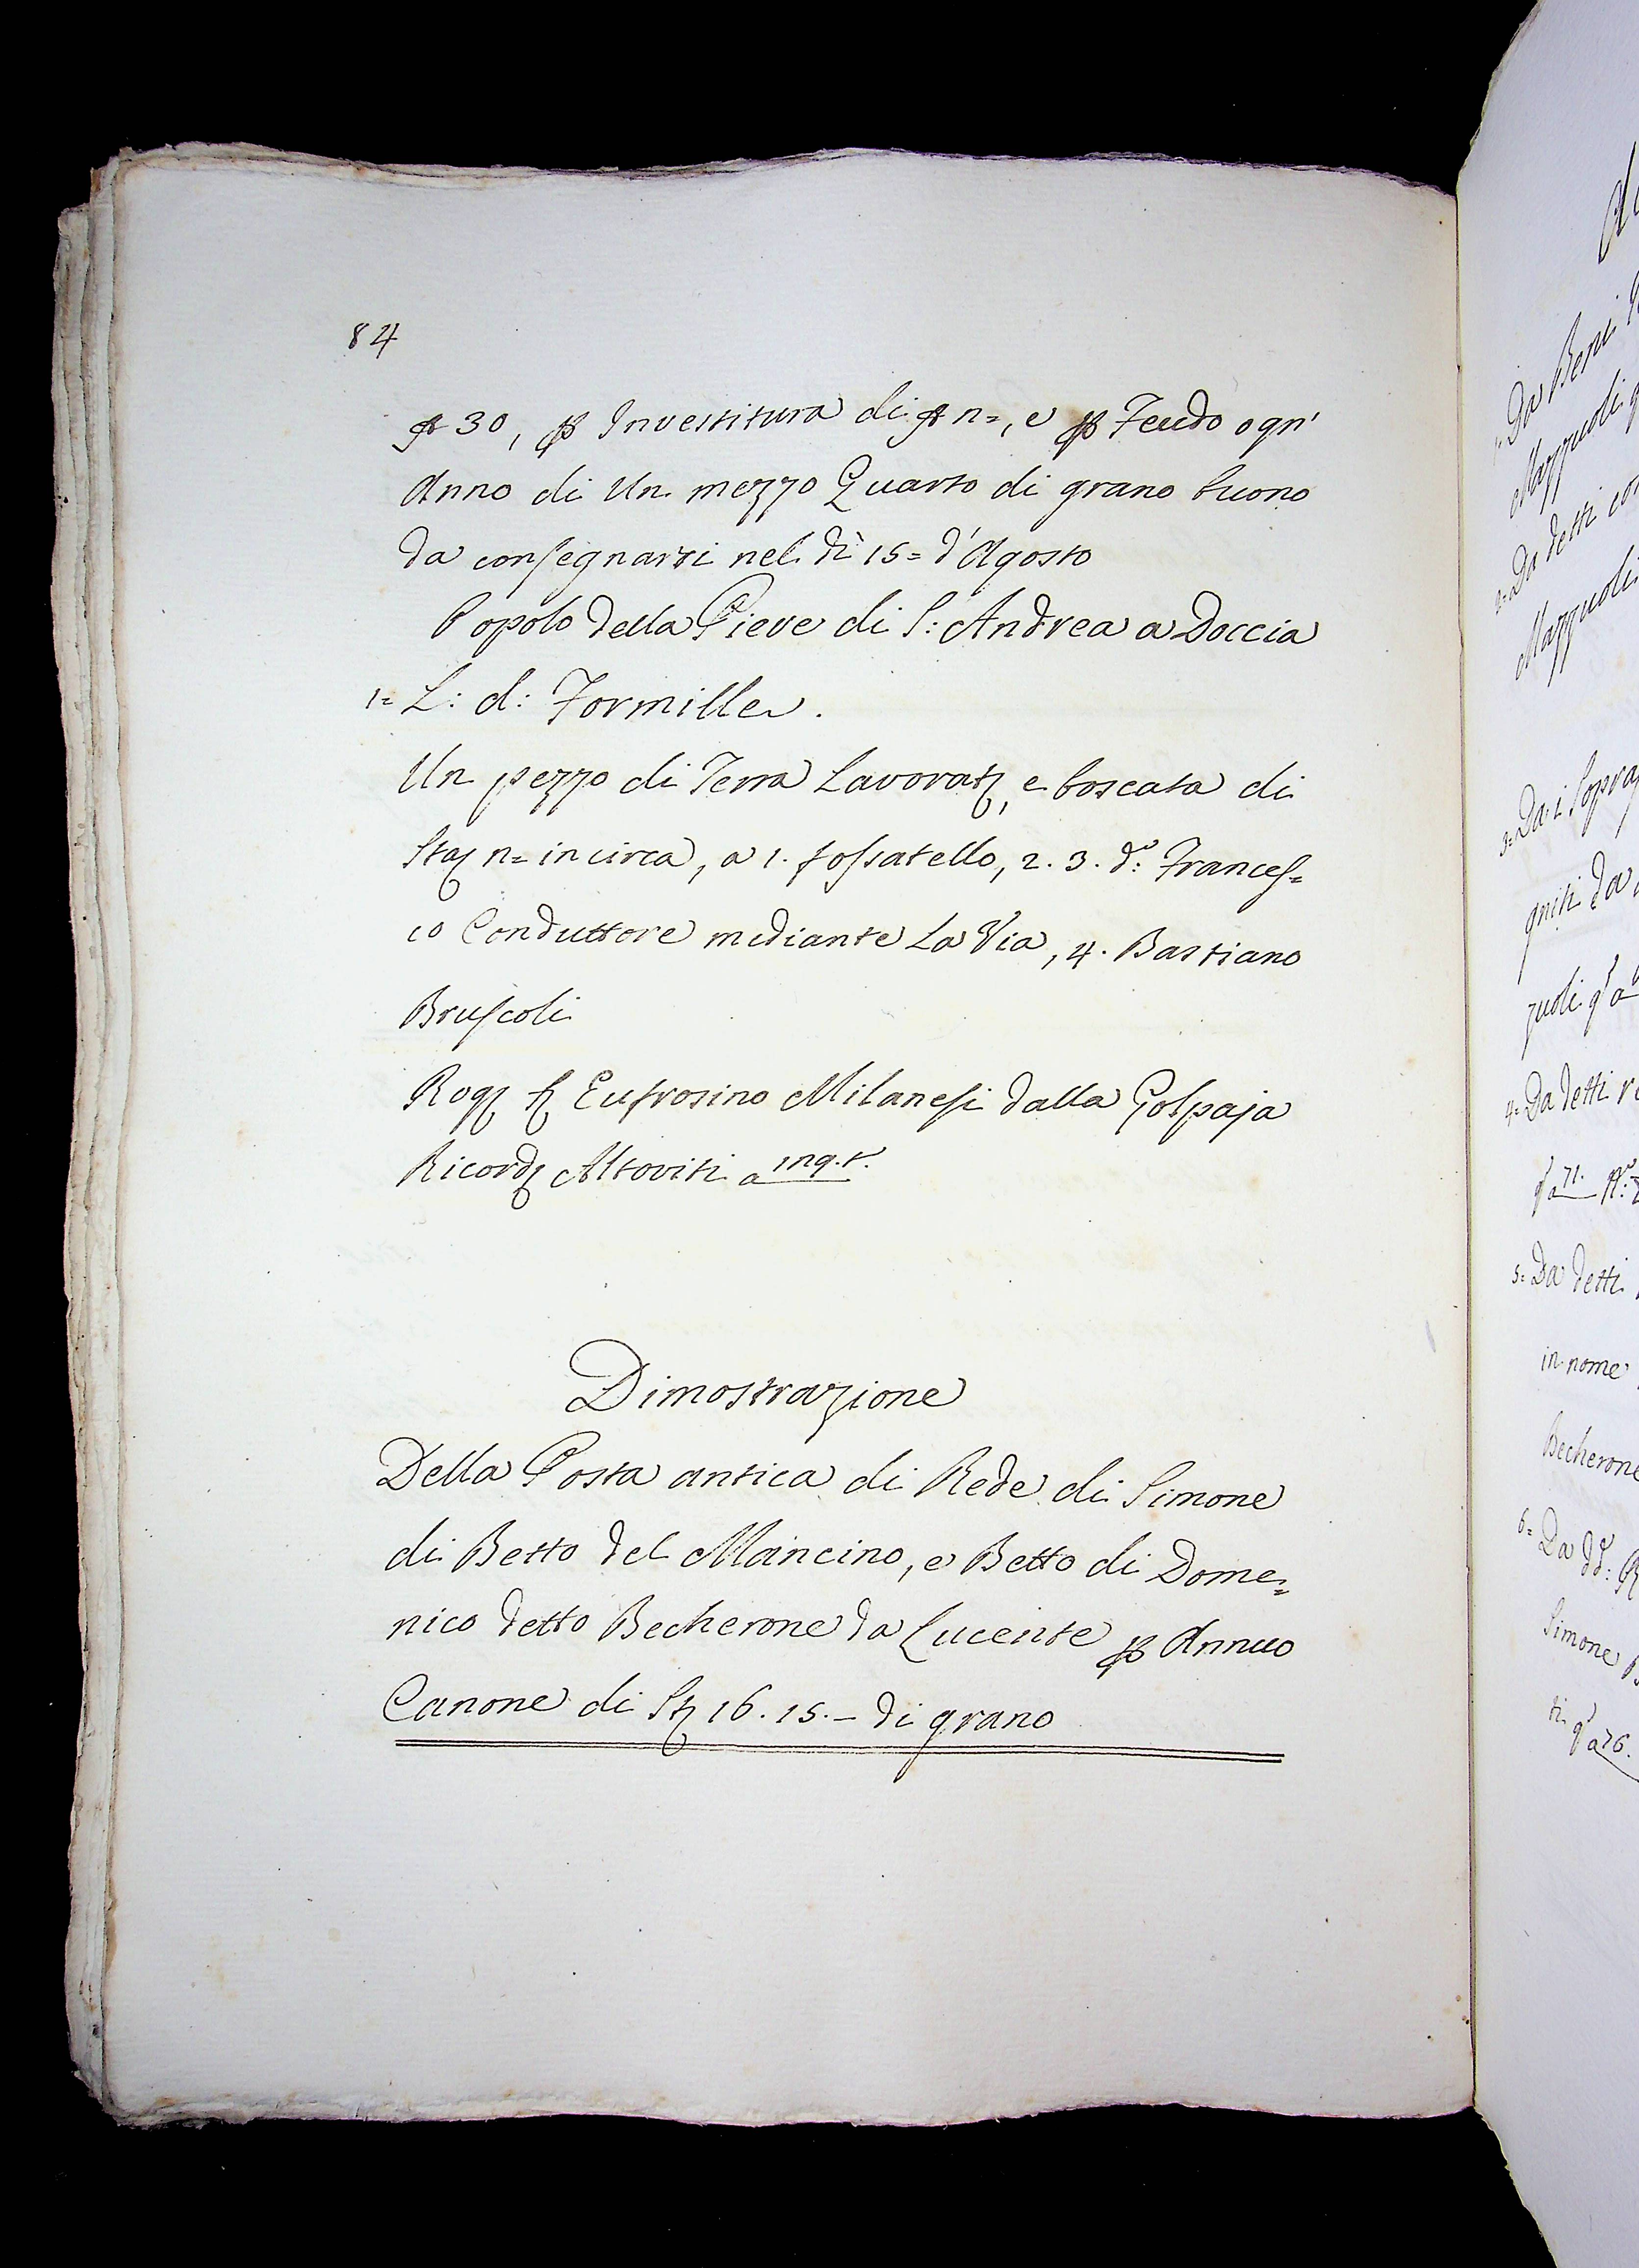 84
30, p Investitura di n=, e p Feudo ogn'
Anno di Un mezzo Quarto di grano buono
da consegnarsi nel dì 15= d'Agosto
Popolo della Pieve di S: Andrea a Doccia
1= L: d: Formille.
Un pezzo di Terra Lavorat, e boscata di
Sta n= in circa, a 1. fossatello, 2. 3. d.o: Frances=
co Conduttore mediante La Via, 4. Bastiano
Bruscoli
Rog Eufrosino Milanesi dalla Golpaja
Ricord Altoviti a 119.t.
Dimostrazione
Della Posta antica di Rede di Simone
di Betto del Mancino, e Betto di Dome=
nico detto Becherone da Lucente p Annuo
Canone di St 16. 15.– di grano
1= Da Berti
Mazzuoli
2= Da detti
Mazzuoli
3= Da i Sopra
gniti da
zuoli
4= Da detti
71.
5= Da detti
in nome
Becherone
6= Da dd:
Simone
ti
76.